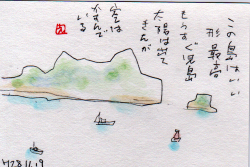 この島はいい
形 最高
もうすぐ児島
太陽は出て
きたが
空は
かすんで
いる
H28.11.19